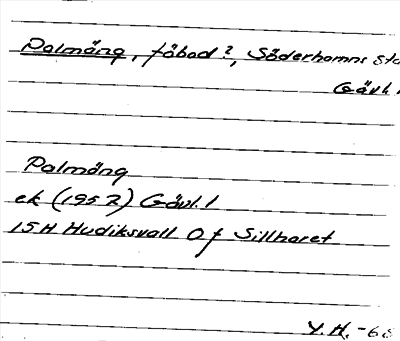 Palmäng, fäbod?, Söderhamns sta
Gävl.
Palmäng
ek (1952) Gävl. l
15H Hudiksvall 0f Sillharet
Y.H. -68